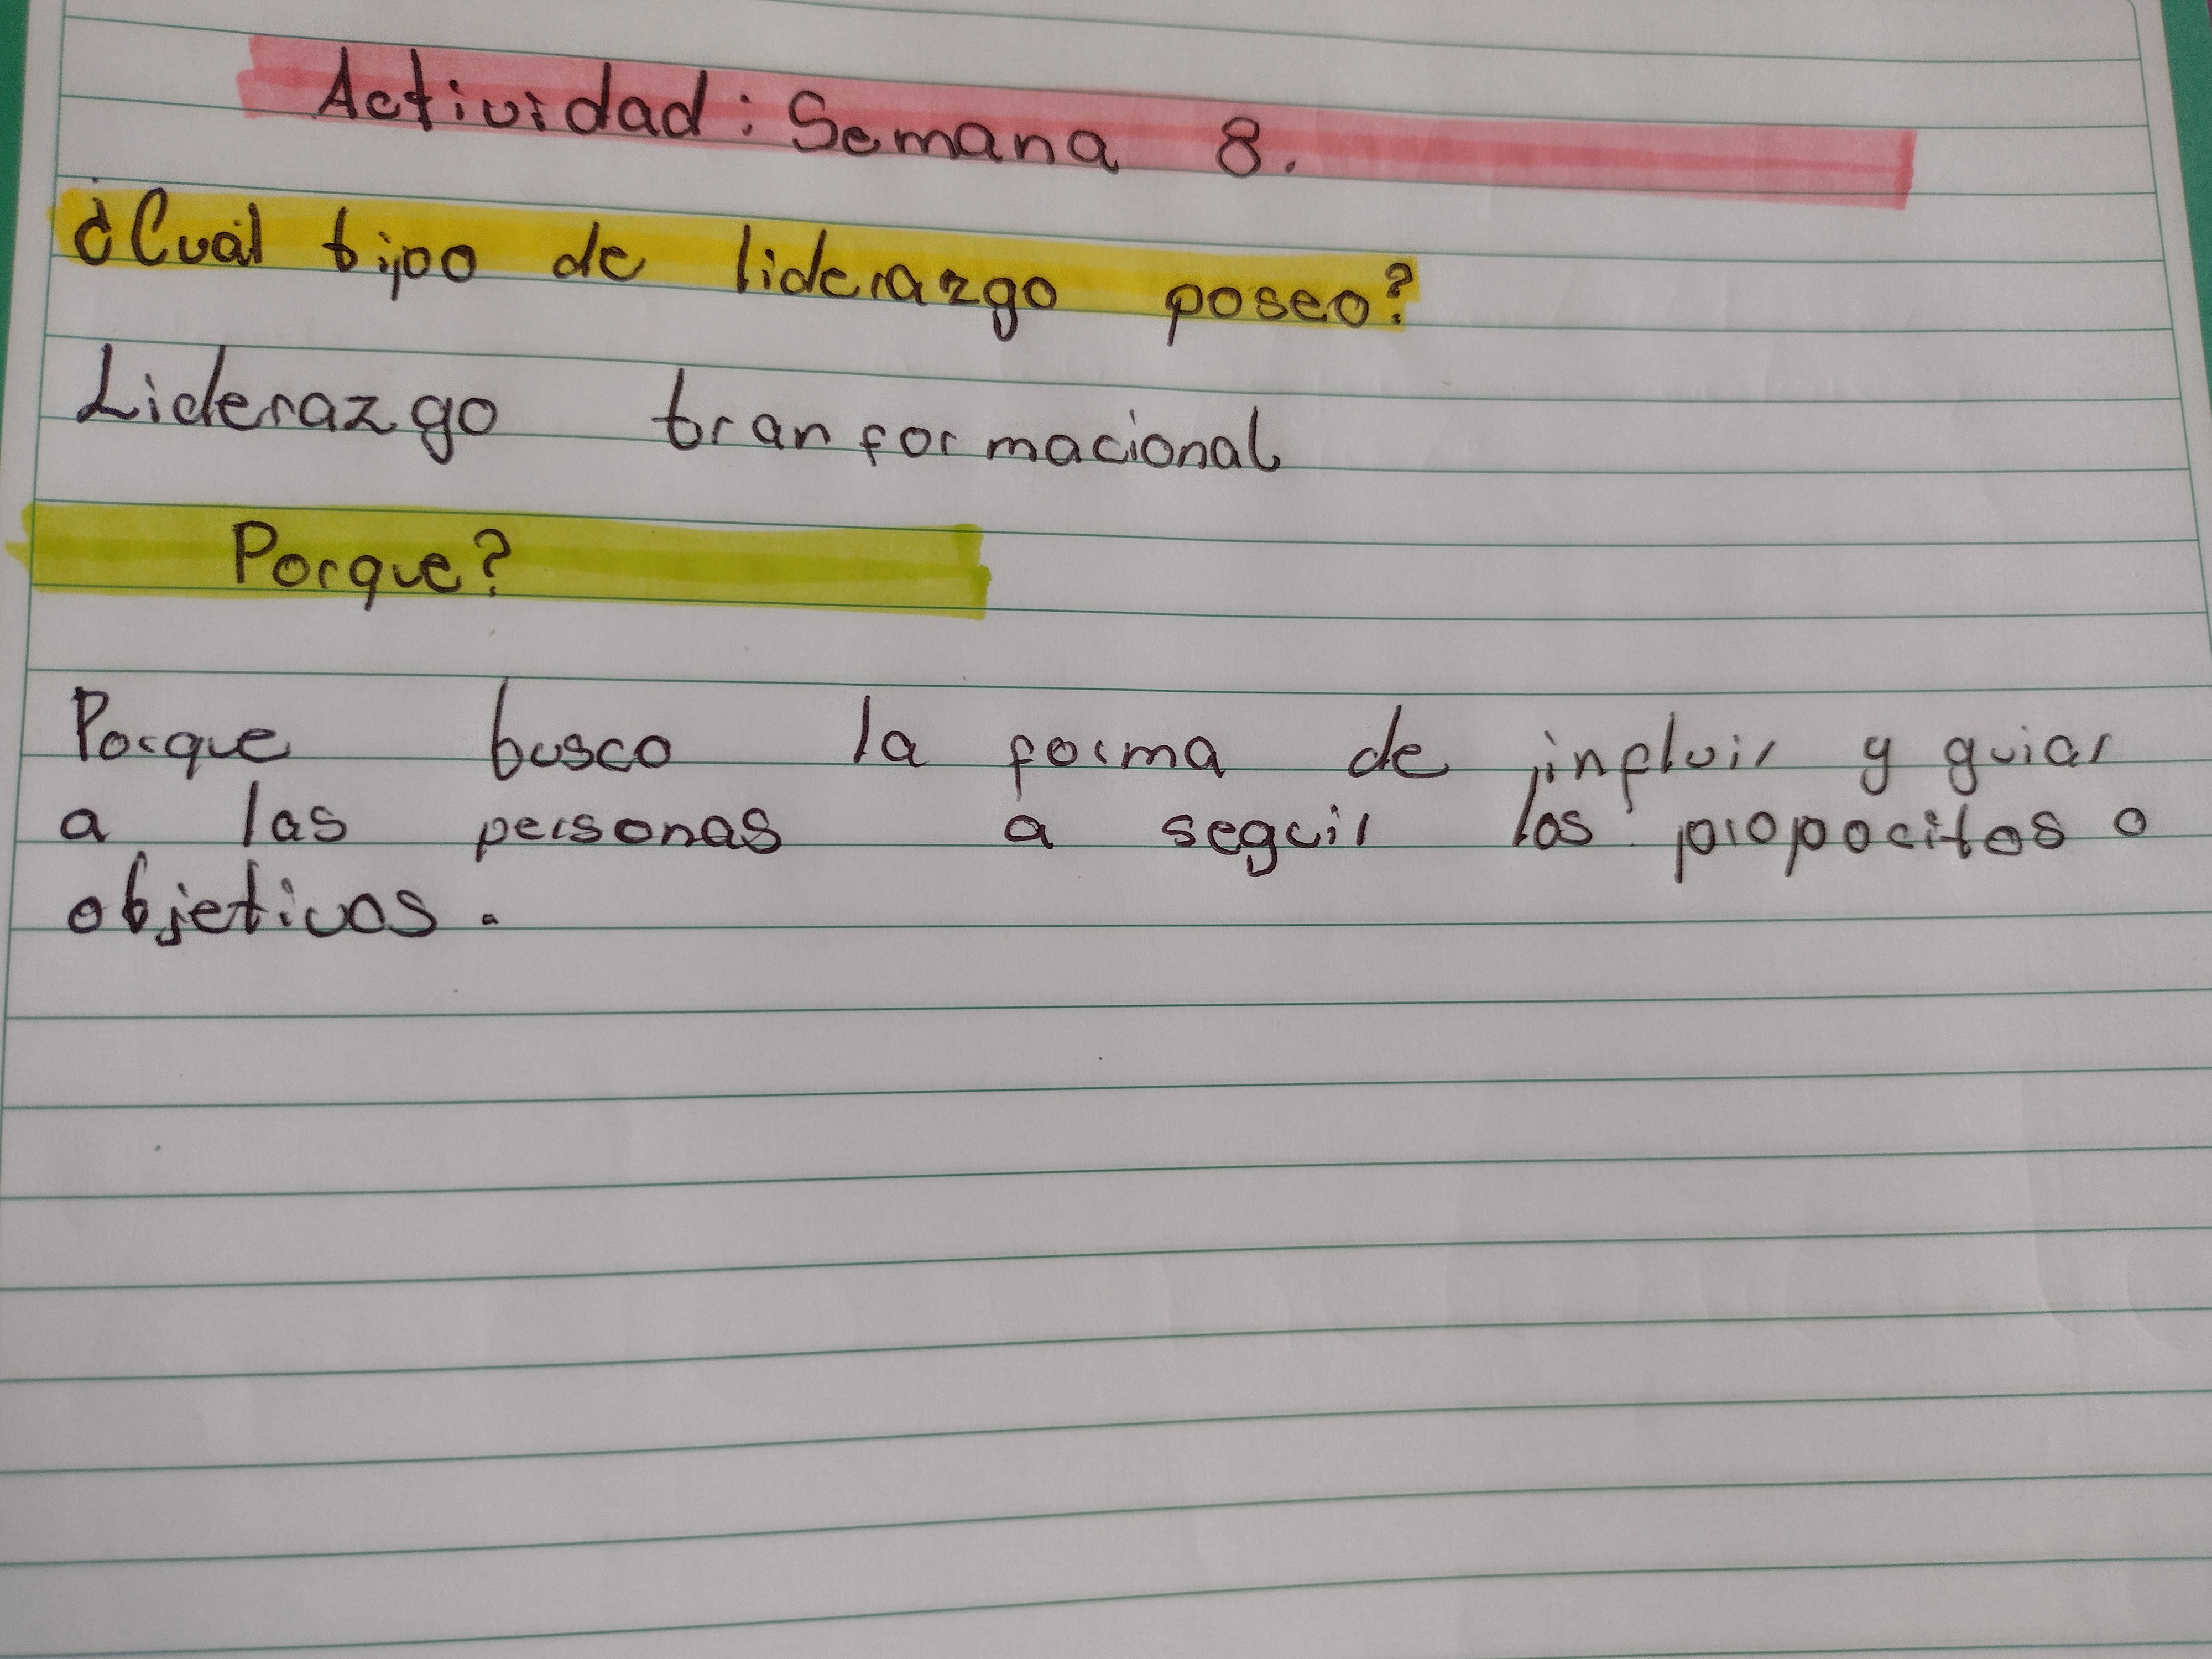 Actividad: Semana 8.
¿Cuál tipo de liderazgo poseo?
Liderazgo tranformacional
Porque?
Porque busco la forma de influir y guiar
a las personas a seguir los propocitos o
objetivos.